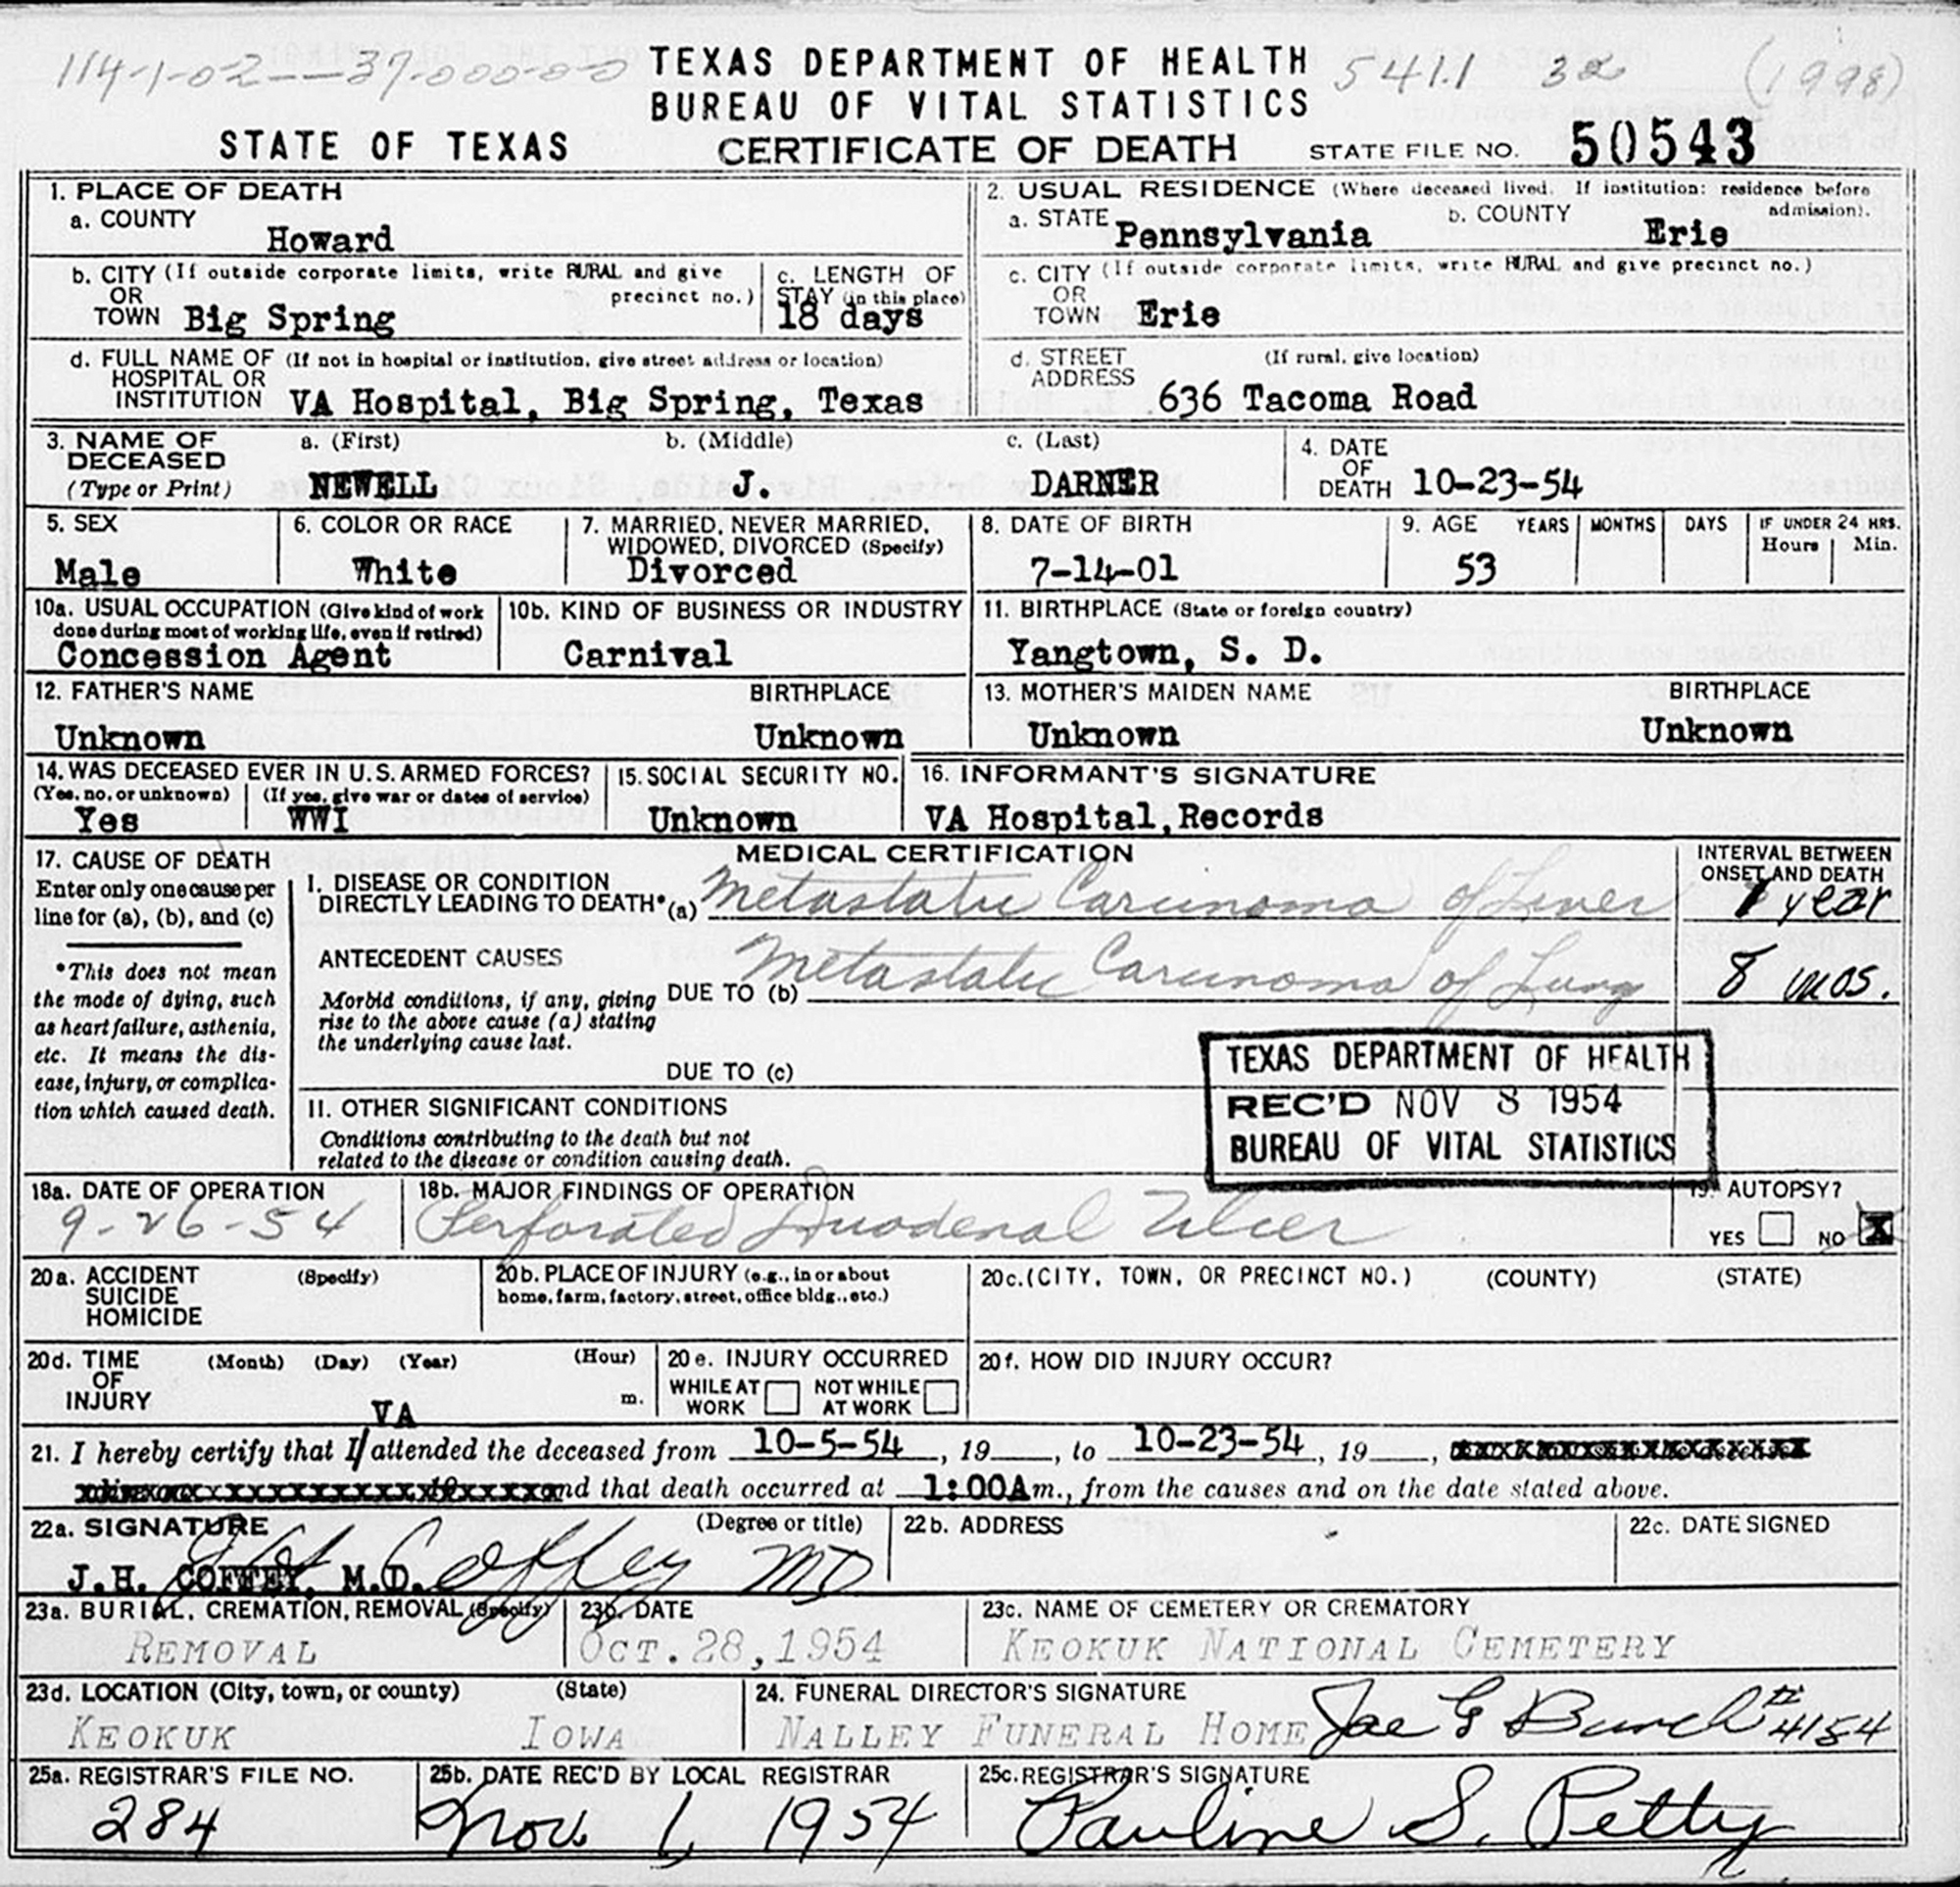 114-1-02--37-000-0-0 TEXAS DEPARTMENT OF HEALTH 541.1 32 (1998)
BUREAU OF VITAL STATISTICS
STATE OF TEXAS CERTIFICATE OF DEATH STATE FILE NO. 50543
1. PLACE OF DEATH
a. COUNTY
Howard
2. USUAL RESIDENCE (Where deceased lived. If institution: residence before admission).
a. STATE Pennsylvania b. COUNTY Erie
b. CITY (If outside corporate limits, write RURAL and give precinct no.)
OR
TOWN Big Spring
c. LENGTH OF
STAY (in this place)
18 days
c. CITY (If outside corporate limits, write RURAL and give precinct no.)
OR
TOWN Erie
d. FULL NAME OF (If not in hospital or institution, give street address or location)
HOSPITAL OR
INSTITUTION VA Hospital, Big Spring, Texas
d. STREET (If rural, give location)
ADDRESS 636 Tacoma Road
3. NAME OF a. (First) b. (Middle) c. (Last)
DECEASED
(Type or Print) NEWELL J. DARNER
4. DATE
OF
DEATH 10-23-54
5. SEX
Male
6. COLOR OR RACE
White
7. MARRIED, NEVER MARRIED,
WIDOWED, DIVORCED (Specify)
Divorced
8. DATE OF BIRTH
7-14-01
9. AGE YEARS MONTHS DAYS IF UNDER 24 HRS.
Hours Min.
53
10a. USUAL OCCUPATION (Give kind of work
done during most of working life, even if retired)
Concession Agent
10b. KIND OF BUSINESS OR INDUSTRY
Carnival
11. BIRTHPLACE (State or foreign country)
Yangtown, S. D.
12. FATHER'S NAME BIRTHPLACE
Unknown Unknown
13. MOTHER'S MAIDEN NAME BIRTHPLACE
Unknown Unknown
14. WAS DECEASED EVER IN U.S. ARMED FORCES?
(Yes, no, or unknown) (If yes, give war or dates of service)
Yes WWI
15. SOCIAL SECURITY NO.
Unknown
16. INFORMANT'S SIGNATURE
VA Hospital, Records
17. CAUSE OF DEATH
Enter only one cause per
line for (a), (b), and (c)
*This does not mean
the mode of dying, such
as heart failure, asthenia,
etc. It means the dis-
ease, injury, or complica-
tion which caused death.
MEDICAL CERTIFICATION
INTERVAL BETWEEN
ONSET AND DEATH
I. DISEASE OR CONDITION
DIRECTLY LEADING TO DEATH* (a) Metastatic Carcinoma of Liver 1 year
ANTECEDENT CAUSES
Morbid conditions, if any, giving
rise to the above cause (a) stating
the underlying cause last.
DUE TO (b) Metastatic Carcinoma of Lung 8 mos.
DUE TO (c)
II. OTHER SIGNIFICANT CONDITIONS
Conditions contributing to the death but not
related to the disease or condition causing death.
TEXAS DEPARTMENT OF HEALTH
REC'D NOV 8 1954
BUREAU OF VITAL STATISTICS
18a. DATE OF OPERATION
9-26-54
18b. MAJOR FINDINGS OF OPERATION
Perforated Duodenal Ulcer
19. AUTOPSY?
YES NO X
20a. ACCIDENT (Specify)
SUICIDE
HOMICIDE
20b. PLACE OF INJURY (e.g., in or about
home, farm, factory, street, office bldg., etc.)
20c. (CITY, TOWN, OR PRECINCT NO.) (COUNTY) (STATE)
20d. TIME (Month) (Day) (Year) (Hour)
OF
INJURY m.
20e. INJURY OCCURRED
WHILE AT WORK NOT WHILE AT WORK
20f. HOW DID INJURY OCCUR?
VA
21. I hereby certify that I/attended the deceased from 10-5-54, 19__, to 10-23-54, 19__,
and that death occurred at 1:00A m., from the causes and on the date stated above.
22a. SIGNATURE (Degree or title)
J.H. COFFEY, M.D. JH Coffey MD
22b. ADDRESS
22c. DATE SIGNED
23a. BURIAL, CREMATION, REMOVAL (Specify)
REMOVAL
23b. DATE
OCT. 28, 1954
23c. NAME OF CEMETERY OR CREMATORY
KEOKUK NATIONAL CEMETERY
23d. LOCATION (City, town, or county) (State)
KEOKUK IOWA
24. FUNERAL DIRECTOR'S SIGNATURE
NALLEY FUNERAL HOME Joe G Burch #4154
25a. REGISTRAR'S FILE NO.
284
25b. DATE REC'D BY LOCAL REGISTRAR
Nov. 1, 1954
25c. REGISTRAR'S SIGNATURE
Pauline S. Petty